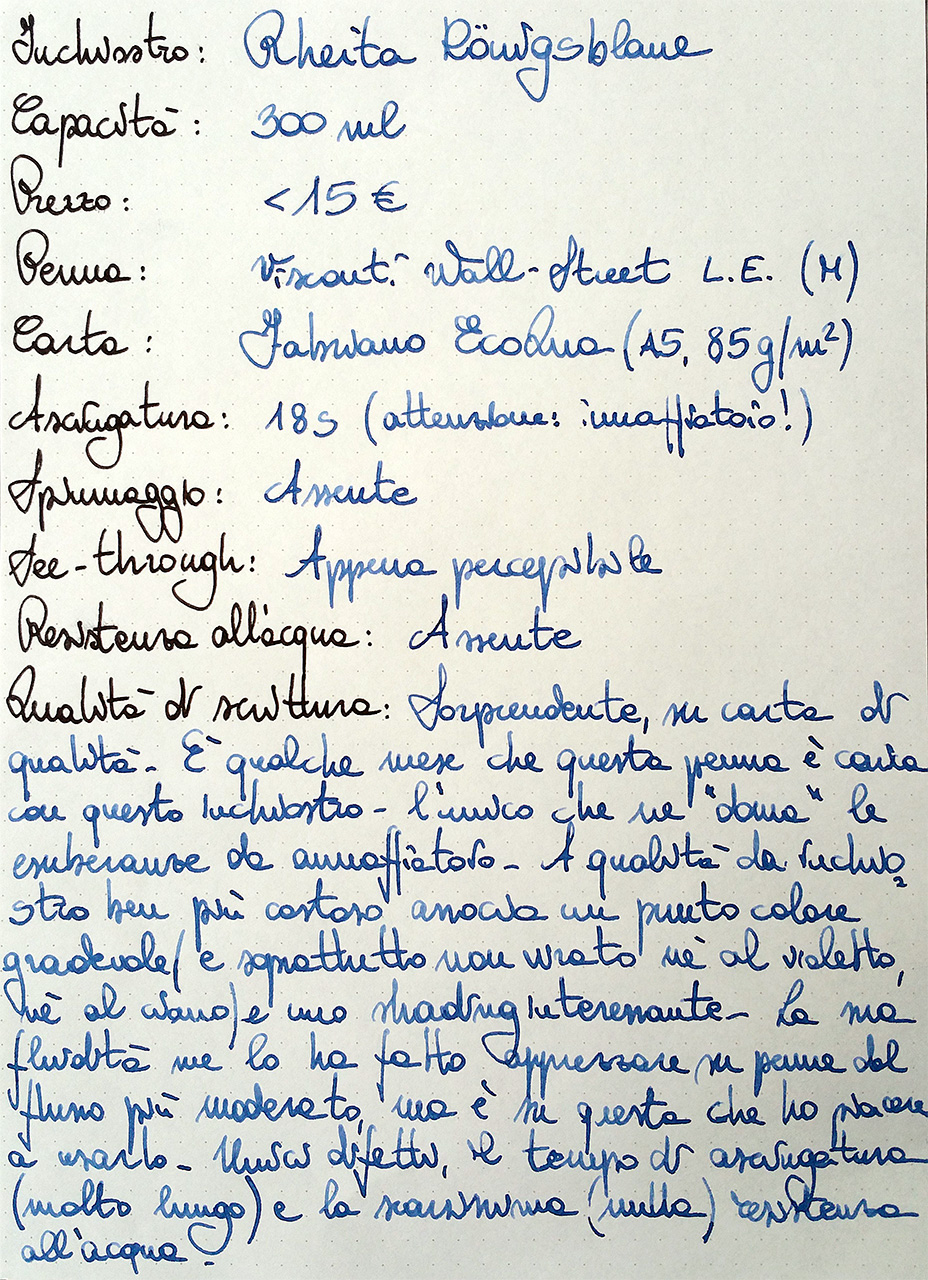 Inchiostro: Rheita Königsblaue
Capacità: 300 ml
Prezzo: <15 €
Penna: Visconti Wall-Street L.E. (M)
Carta: Fabriano EcoQua (A5, 85g/m²)
Asciugatura: 18s (attenzione: innaffiatoio!)
Spiumaggio: Assente
See-through: Appena percepibile
Resistenza all'acqua: Assente
Qualità di scrittura: Sorprendente, su carta di
qualità. È qualche mese che questa penna è carica
con questo inchiostro - l'unico che ne "doma" le
esuberanze da annaffiatoio - A qualità da inchio
stro ben più costoso associa un punto colore
gradevole (e soprattutto non virato né al violetto,
né al ciano) e uno shading interessante - La sua
fluidità me lo ha fatto apprezzare su penne dal
flusso più moderato, ma è su questa che ho piacere
a usarlo - Unici difetti, il tempo di asciugatura
(molto lungo) e la scarsissima (nulla) resistenza
all'acqua.